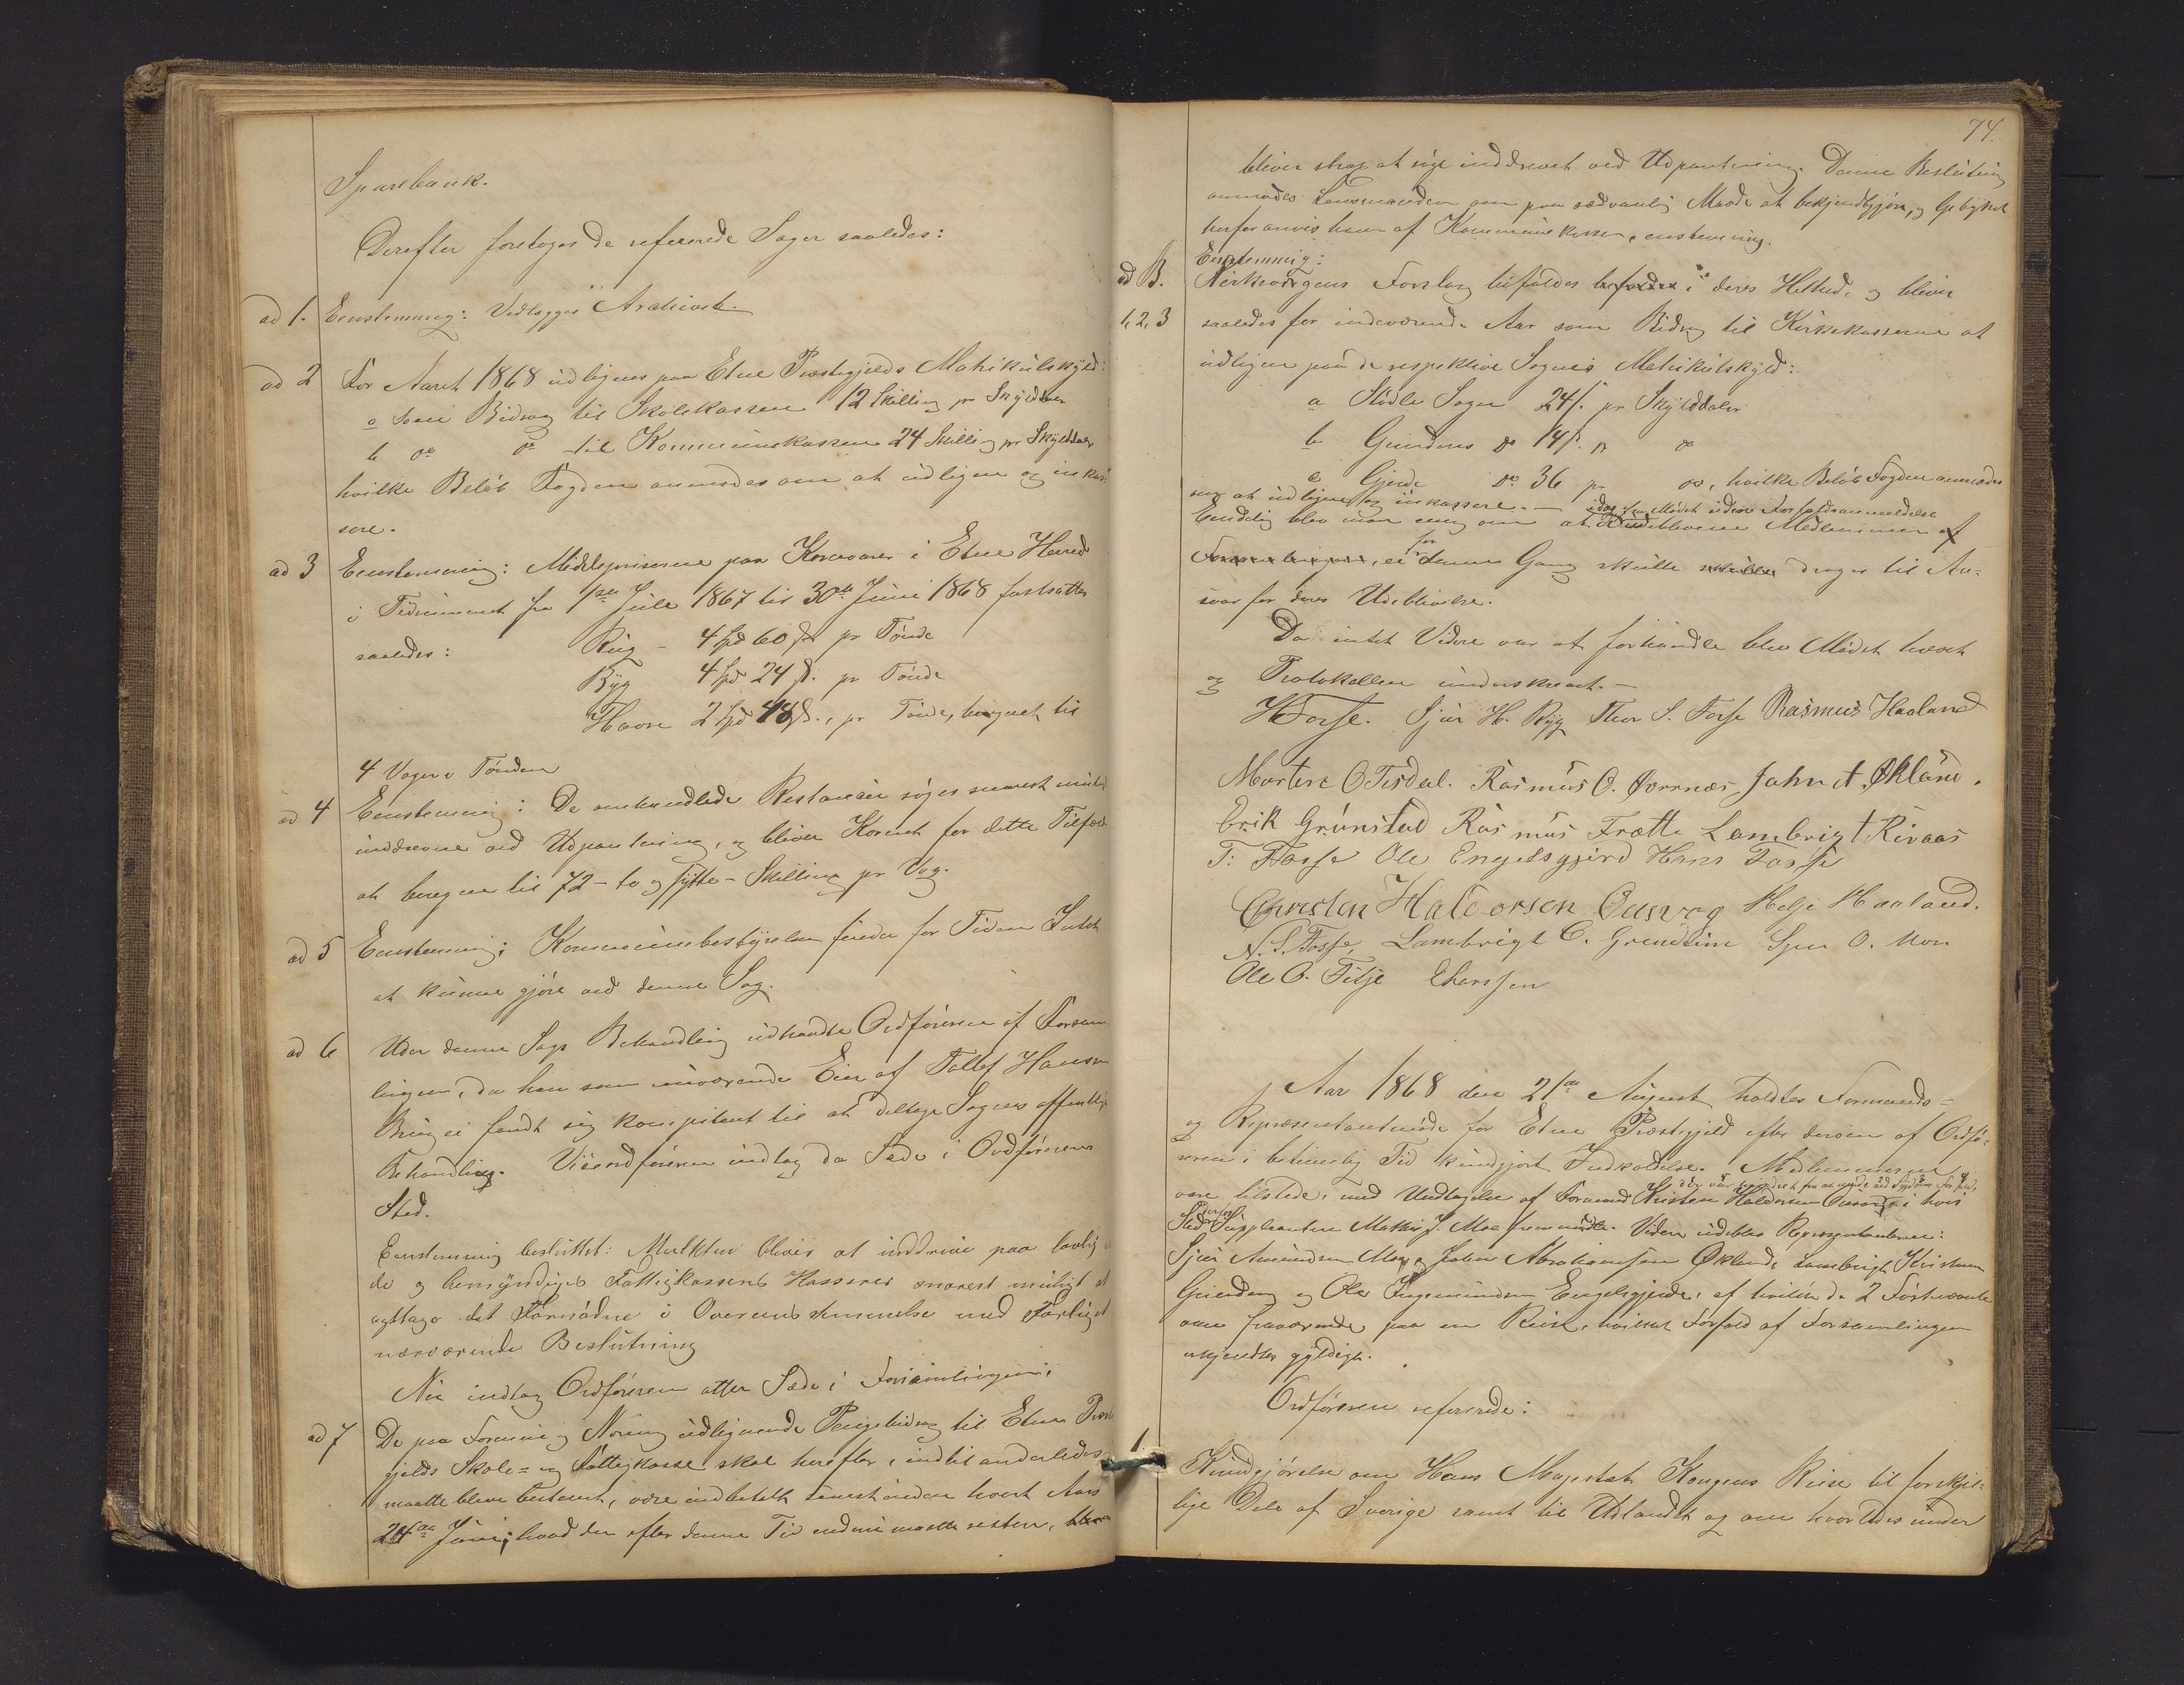 Sparebank.
Derefter foretoges de refererede Sager saaledes:
ad 1. Eenstemmig: Vedlægges Archivet.
ad 2 For Aaret 1868 udlignes paa Etne Præstegjelds Matrikulskyld:
a som Bidrag til Skolekassen 12 Skilling pr Skylddaler
b do do til Kommunekassen 24 Skilling pr Skylddaler
hvilke Beløb Fogden anmodes om at udligne og inkas-
sere.
ad 3 Eenstemmig: Middelpriserne paa Kornvarer i Etne Herred
i Tidsrummet fra 1ste Juli 1867 til 30te Juni 1868 fastsættes
saaledes: Rug - 4 Spd 60 s. pr Tønde
Byg 4 Spd 24 s. pr Tønde
Havre 2 Spd 48 s., pr Tønde, beregnet til
4 Voger i Tønden
ad 4 Eenstemmig: De omhandlede Restancer søges snarest muligt
inddrevne ved Udpantning, og bliver Kornet for dette Tilfælde
at beregne til 72 - to og sytti - Skilling pr Vog.
ad 5 Eenstemmig: Kommunebestyrelsen finder for Tiden Intet
at kunne gjøre ved denne Sag.
ad 6 Under denne Sags Behandling udtraadte Ordføreren af Forsam-
lingen, da han som nuværende Eier af Tollef Hansens
Brug ei fandt sig kompetent til at deltage Sagens offentlige
Behandling. Viceordføreren indtog da Sæde i Ordførerens
Sted.
Eenstemmig besluttet: Mulkten bliver at inddrive paa lovlig
de og bemyndiges Fattigkassens Kasserer snarest muligt at
agttage det Fornødne i Overensstemmelse med
nærværende Beslutning
Nu indtog Ordføreren atter Sæde i Forsamlingen.
ad 7 De paa Formue og Næring udlignende Pengebidrag til Etne Præste-
gjelds Skole- og Fattigkasse skal herefter, indtil anderledes
maatte blive bestemt, være indbetalt senest inden hvert Aars
24de Juni; hvad der efter denne Tid endnu maatte restere,
74.
bliver strax at søge inddrevet ved Udpantning. Denne Beslutning
anmodes Lensmanden om paa sædvanlig Maade at bekjendtgjøre, og
herfor anvises ham af Kommunekassen, enstemmig.
Eenstemmig:
ad B. Kirkevergens Forslag bifaldes i deres Helhed, og bliver
1, 2, 3 saaledes for indeværende Aar som Bidrag til Kirkekasserne at
udligne paa de respektive Sognes Matrikulskyld:
a Stødle Sogn 24 s. pr Skylddaler
b Grindens do 14 s. pr do
c Gjerde do 36 pr do, hvilke Beløb Fogden anmodes
om at udligne og inkassere. —
idag fra Mødet uden Forfaldsanmeldelse
Endelig blev man enig om at udeblevne Medlemmer af
Forsamlingen, ei for denne Gang skulle skulle drages til An-
svar for deres Udeblivelse.
Da intet Videre var at forhandle blev Mødet hævet
og Protokollen underskrevet. —
H Fosse. Sjur H. Ryg Thor S. Fosse Rasmus Haaland
Morten O Tesdal. Rasmus O. Børrnæs John A. Økland.
Erik Grønstad Rasmus Frætte Lambrigt Kivaas
T: Fosse Ole Engelsgjerd Hans Fosse
Christen Halvorsen Ousvog Helje Haaland.
N. S. Fosse, Lambrigt C. Grindeim Sjur A. Moe
Ole O. Fitje Eherssen
Aar 1868 den 21de August holdtes Formands-
og Repræsentantmøde for Etne Præstegjeld efter derom af Ordfø-
reren i betimelig Tid kundgjort Indkaldelse. Medlemmerne
der var hindret fra at møde ved Sygdoms Forfald,
vare tilstede, med Undtagelse af Formand Kristen Halvorsen Ousvog i hvis
Sted Suppleanten Mathis J. Moe fremmødte. Videre udeblev Repræsentanterne:
Sjur Amundsen Moe, John Abrahamsen Økland, Lambrigt Kristensen
Grindeng og Ole Ingemundsen Engelsgjerde, af hvilke de 2 Førstnævnte
vare fraværende paa en Reise, hvilket Forfald af Forsamlingen
erkjendtes gyldigt.
Ordføreren refererede:
1. Kundgjørelse om Hans Majestæt Kongens Reise til forskjel-
lige Dele af Sverige samt til Udlandet og om hvorledes under